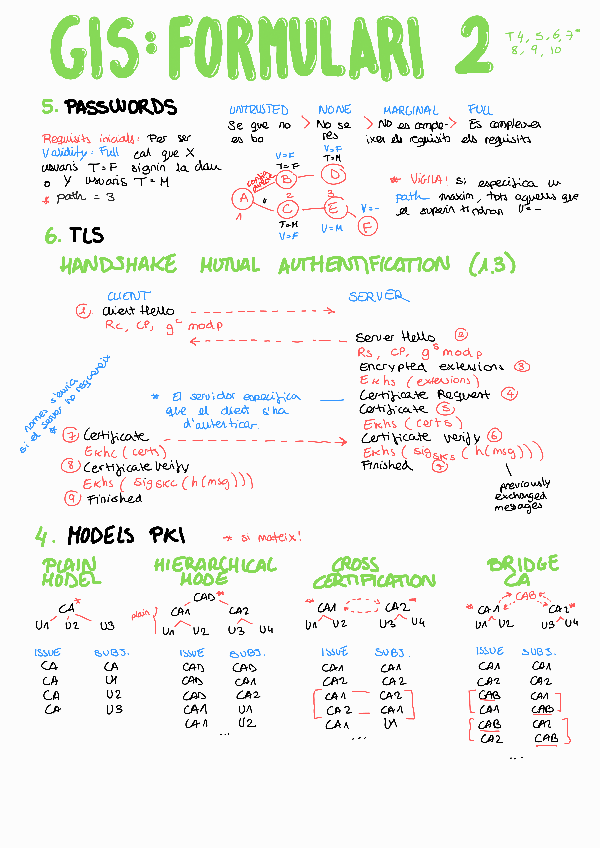 GIS: FORMULARI 2
T4, 5, 6, 7*
8, 9, 10
5. PASSWORDS
UNTRUSTED NONE MARGINAL FULL
Se que no > No se > No es comple-> Es compleixen
es bo res ixen els requisits els requisits
Requisits inicials: Per ser
Validity: Full cal que X
usuaris T=F signin la clau
o Y usuaris T=M
* path = 3
V=F
T=F
B
V=F
T=M
D
A
1
2
C
T=M
V=F
3
E
V=M
V=-
F
* VIGILA: si especifica un
path maxim, tots aquells que
el superin tindran V=-
6. TLS
HANDSHAKE MUTUAL AUTHENTIFICATION (1.3)
CLIENT SERVER
1 Client Hello
Rc, CP, g^c mod p
Server Hello 2
Rs, CP, g^s mod p
Encrypted extensions 3
Ekhs (extensions)
Certificate Request 4
Certificate 5
Ekhs (certs)
Certificate Verify 6
Ekhs (sigSKs (h(msg)))
Finished
* El servidor especifica
que el client s'ha
d'autenticar.
només s'envia
si el server ho requereix
*
7 Certificate
Ekhc (certs)
8 Certificate Verify
Ekhs (SigSKc (h(msg)))
9 Finished
previously
exchanged
messages
4. MODELS PKI * si mateix!
PLAIN
MODEL
HIERARCHICAL
MODE
CROSS
CERTIFICATION
BRIDGE
CA
CA*
U1 U2 U3
CA0*
plain
CA1 CA2
U1 U2 U3 U4
* CA1 CA2 *
U1 U2 U3 U4
CAB*
* CA1 CA2 *
U1 U2 U3 U4
ISSUE SUBJ.
CA CA
CA U1
CA U2
CA U3
ISSUE SUBJ.
CA0 CA0
CA0 CA1
CA0 CA2
CA1 U1
CA1 U2
...
ISSUE SUBJ.
CA1 CA1
CA2 CA2
CA1 CA2
CA2 CA1
CA1 U1
...
ISSUE SUBJ.
CA1 CA1
CA2 CA2
CAB CA1
CA1 CAB
CAB CA2
CA2 CAB
...